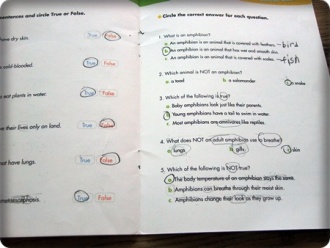 sentences and circle True or False.
have dry skin.
True False
cold-blooded.
True False
eat plants in water.
True False
their lives only on land.
True False
not have lungs.
True False
metamorphosis.
True False
Circle the correct answer for each question.
1. What is an amphibian?
a An amphibian is an animal that is covered with feathers. → bird
b An amphibian is an animal that has wet and smooth skin.
c An amphibian is an animal that is covered with scales. → fish
2. Which animal is NOT an amphibian?
a a toad b a salamander c a snake
3. Which of the following is true?
a Baby amphibians look just like their parents.
b Young amphibians have a tail to swim in water.
c Most amphibians are omnivores like reptiles.
4. What does NOT an adult amphibian use to breathe?
a lungs b gills c skin
5. Which of the following is NOT true?
a The body temperature of an amphibian stays the same.
b Amphibians can breathe through their moist skin.
c Amphibians change their look as they grow up.